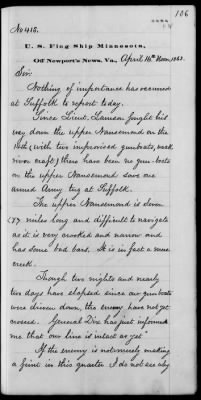 106
No 418.
U. S. Flag Ship Minnesota,
Off Newport's News, Va., April 16th Noon, 1863.
Sir:
Nothing of importance has occurred
at Suffolk to report today.
Since Lieut. Lamson fought his
way down the upper Nansemond on the
14th (with two improvised gunboats, weak
river craft) there have been no gun-boats
on the upper Nansemond save one
armed Army tug at Suffolk.
The upper Nansemond is seven
(7) miles long and difficult to navigate
as it is very crooked and narrow and
has some bad bars. It is in fact a mere
creek.
Though two nights and nearly
two days have elapsed since our gunboats
were driven down, the enemy have not yet
crossed. General Dix has just informed
me that our line is intact as yet.
If the enemy is not merely making
a feint in this quarter I do not see why